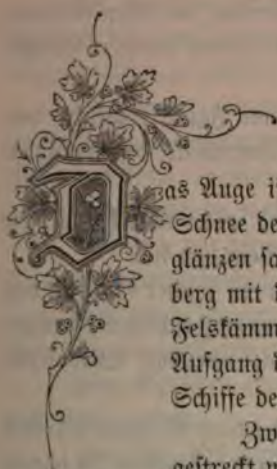 Das Auge i
Schnee de
glänzen so
berg mit
Felskämm
Aufgang
Schiffe de
Zw
gestreckt